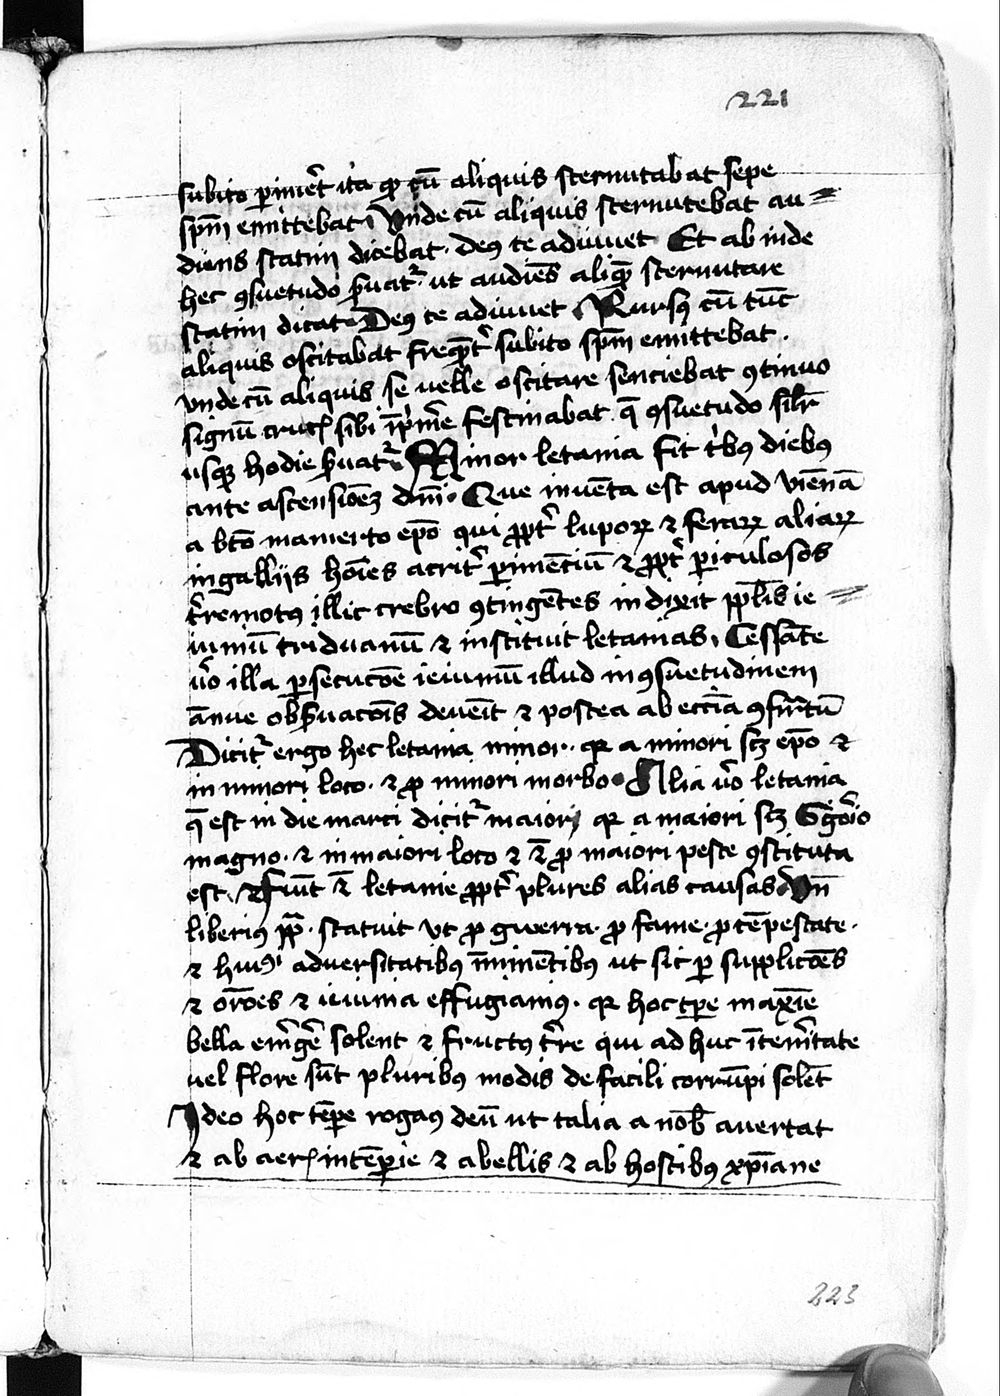 221
subito perimēt ita ꝙ cū aliquis sternutabat sepe
sp̄m emittebat Vnde cū aliquis sternutebat au=
diens statim dicebat. Deꝰ te adiuuet Et ab inde
hec ꝯsuetudo ẜuat᷑. ut audiēs aliq̄ sternutare
statim dicat Deꝰ te adiuuet Rursꝰ cū tūc
aliquis oscitabat freq̄ꝫt᷑ subito sp̄m emittebat.
vnde cū aliquis se uelle oscitare senciebat ꝯtinuo
signū crucꝭ sibi īp̄m̄e festinabat. q̄ ꝯsuetudo silr̄
usqꝫ hodie ẜuat᷑ Minor letania fit t̄bꝰ diebꝰ
ante ascensiōeꝫ dn̄i. Que inuēta est apud viēnā
a bt̄o mamerto ep̄o qui ꝓpt᷑ lupoꝝ ⁊ feraꝝ aliaꝝ
in gallijs hoīes acrit᷑ ꝑimēciū ⁊ ꝓpt᷑ ꝑiculosos
t̄remotꝰ illic crebro ꝯtingētes indixit ppl̄is ie=
iuniū triduanū ⁊ instituit letanias. Cessāte
ūo illa ꝑsecucōe ieiuniū illud in ꝯsuetudinem
ānue obẜuacōis deueīt ⁊ postea ab ecc̄ia ꝯfir̄tū
Dicit᷑ ergo hec letania minor. qꝛ a minori scꝫ ep̄o ⁊
in minori loco. ⁊ ꝓ minori morbo. Alia ūo letania
q̄ est in die marci dicit᷑ maior qꝛ a maiori scꝫ Gḡorio
magno. ⁊ in maiori loco ⁊ ē ꝓ maiori peste ꝯstituta
est. ⁊ fiūt ē letanie ꝓpt᷑ plures alias causas Vn̄
liberiꝰ pp̄. statuit vt ꝓ gwerra. ꝓ fame. ꝓ tēpestate.
⁊ huiꝰ aduersitatibꝰ īminētibꝰ ut sic ꝑ supplicōēs
⁊ or̄oes ⁊ ieiunia effugiamꝰ. qꝛ hoc tꝑe maxīe
bella em̄gē solent ⁊ fructꝰ t̄re qui ad huc ī ten̄itate
uel flore sūt pluribꝰ modis de facili corrūpi solēt
Ideo hoc tēpe rogaꝰ deū ut talia a nob̄ auertat
⁊ ab aerꝭ intēꝑie ⁊ a bellis ⁊ ab hostibꝰ xp̄iane
223